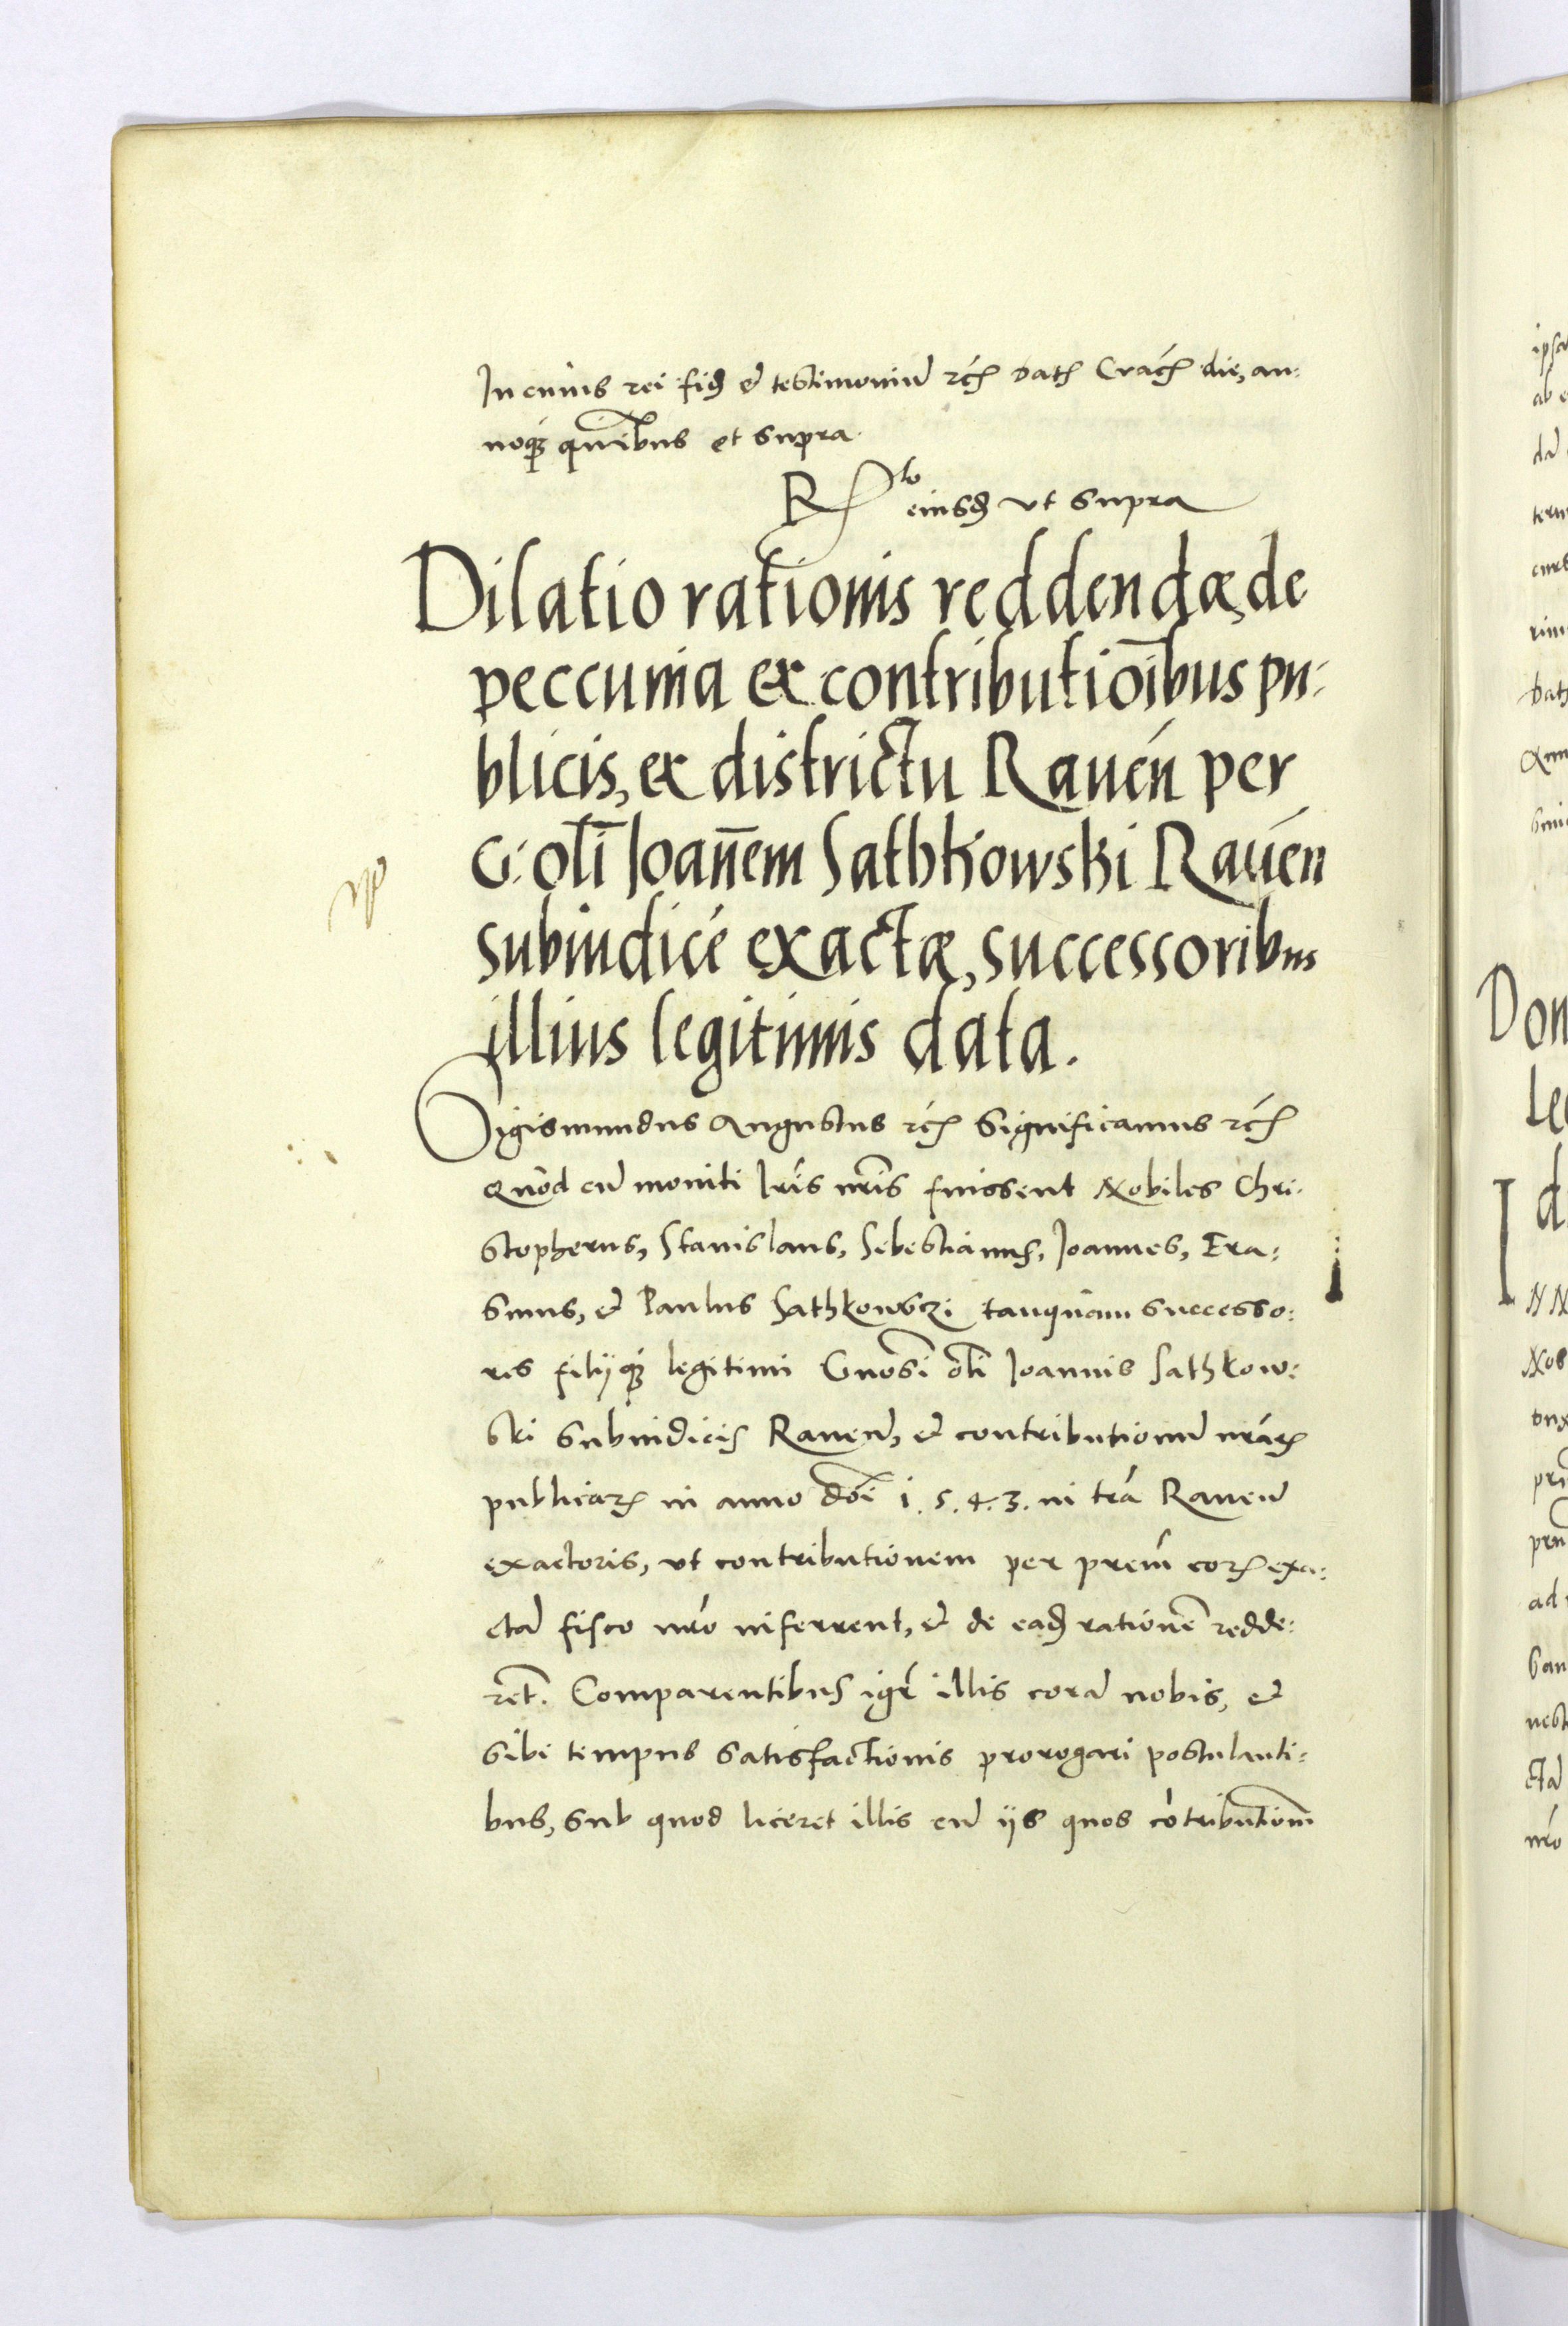 In cuius rei fid et testimoniũ rc̃ dat Crac̃ die, an:
noq́ꝫ quibus et supra.
R lo eiusd vt supra
Dilatio rationis reddendæ de
peccunia ex contributioĩbus pu:
blicis, ex districtu Raueń per
G: oli Ioañem Sathkowski Raueń
subiudicé exactæ, successoribus
illius legitimis data.
Sigismundus Augustus rc̃ Significamus rc̃
Quod cũ moniti lŕis nŕis fuissent Nobiles Chri:
stopherus, Stanislaus, Sebestianus, Ioannes, Era:
smus, et Paulus Sathkowsczi tanquam successo:
res filijq́ꝫ legitimi Gnosi oli Ioannis Sathkow:
ski subiudicis Raueñ, et contributionũ nŕaꝝ
publicaꝝ in anno doĩ 1.5.4.3. in tŕa Raueñ
exactoris, vt contributionem per preḿ eoꝝ exa:
ctã fisco nŕo inferrent, et de ead rationẽ redde:
rẽt. Comparentibus igŕ illis corã nobis, et
sibi tempus satisfactionis prorogari postulanti:
bus, sub quod liceret illis cũ ijs quos cõtributionũ